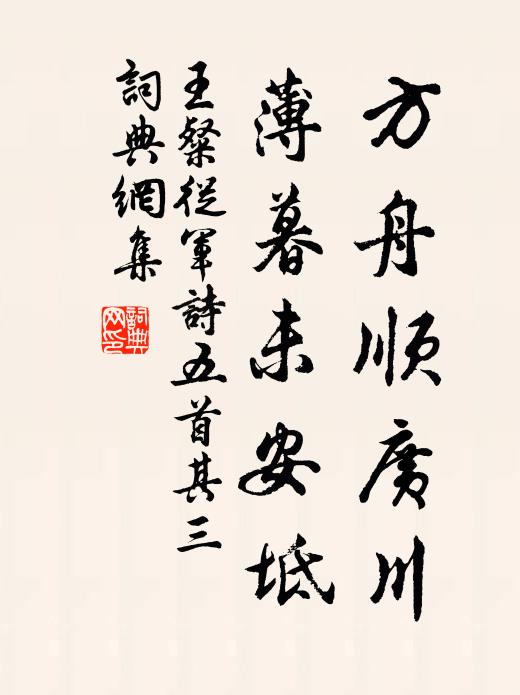 方舟順廣川
薄暮未安坻
王粲從軍詩五首其三
詞典網集
詞典网印